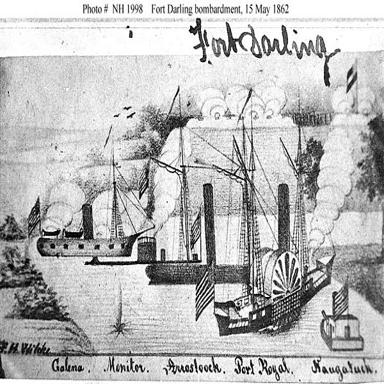 Photo # NH 1998 Fort Darling bombardment, 15 May 1862
Fort Darling
Galena. Moniter. Arrostoock. Port Royal. Naugatuck.